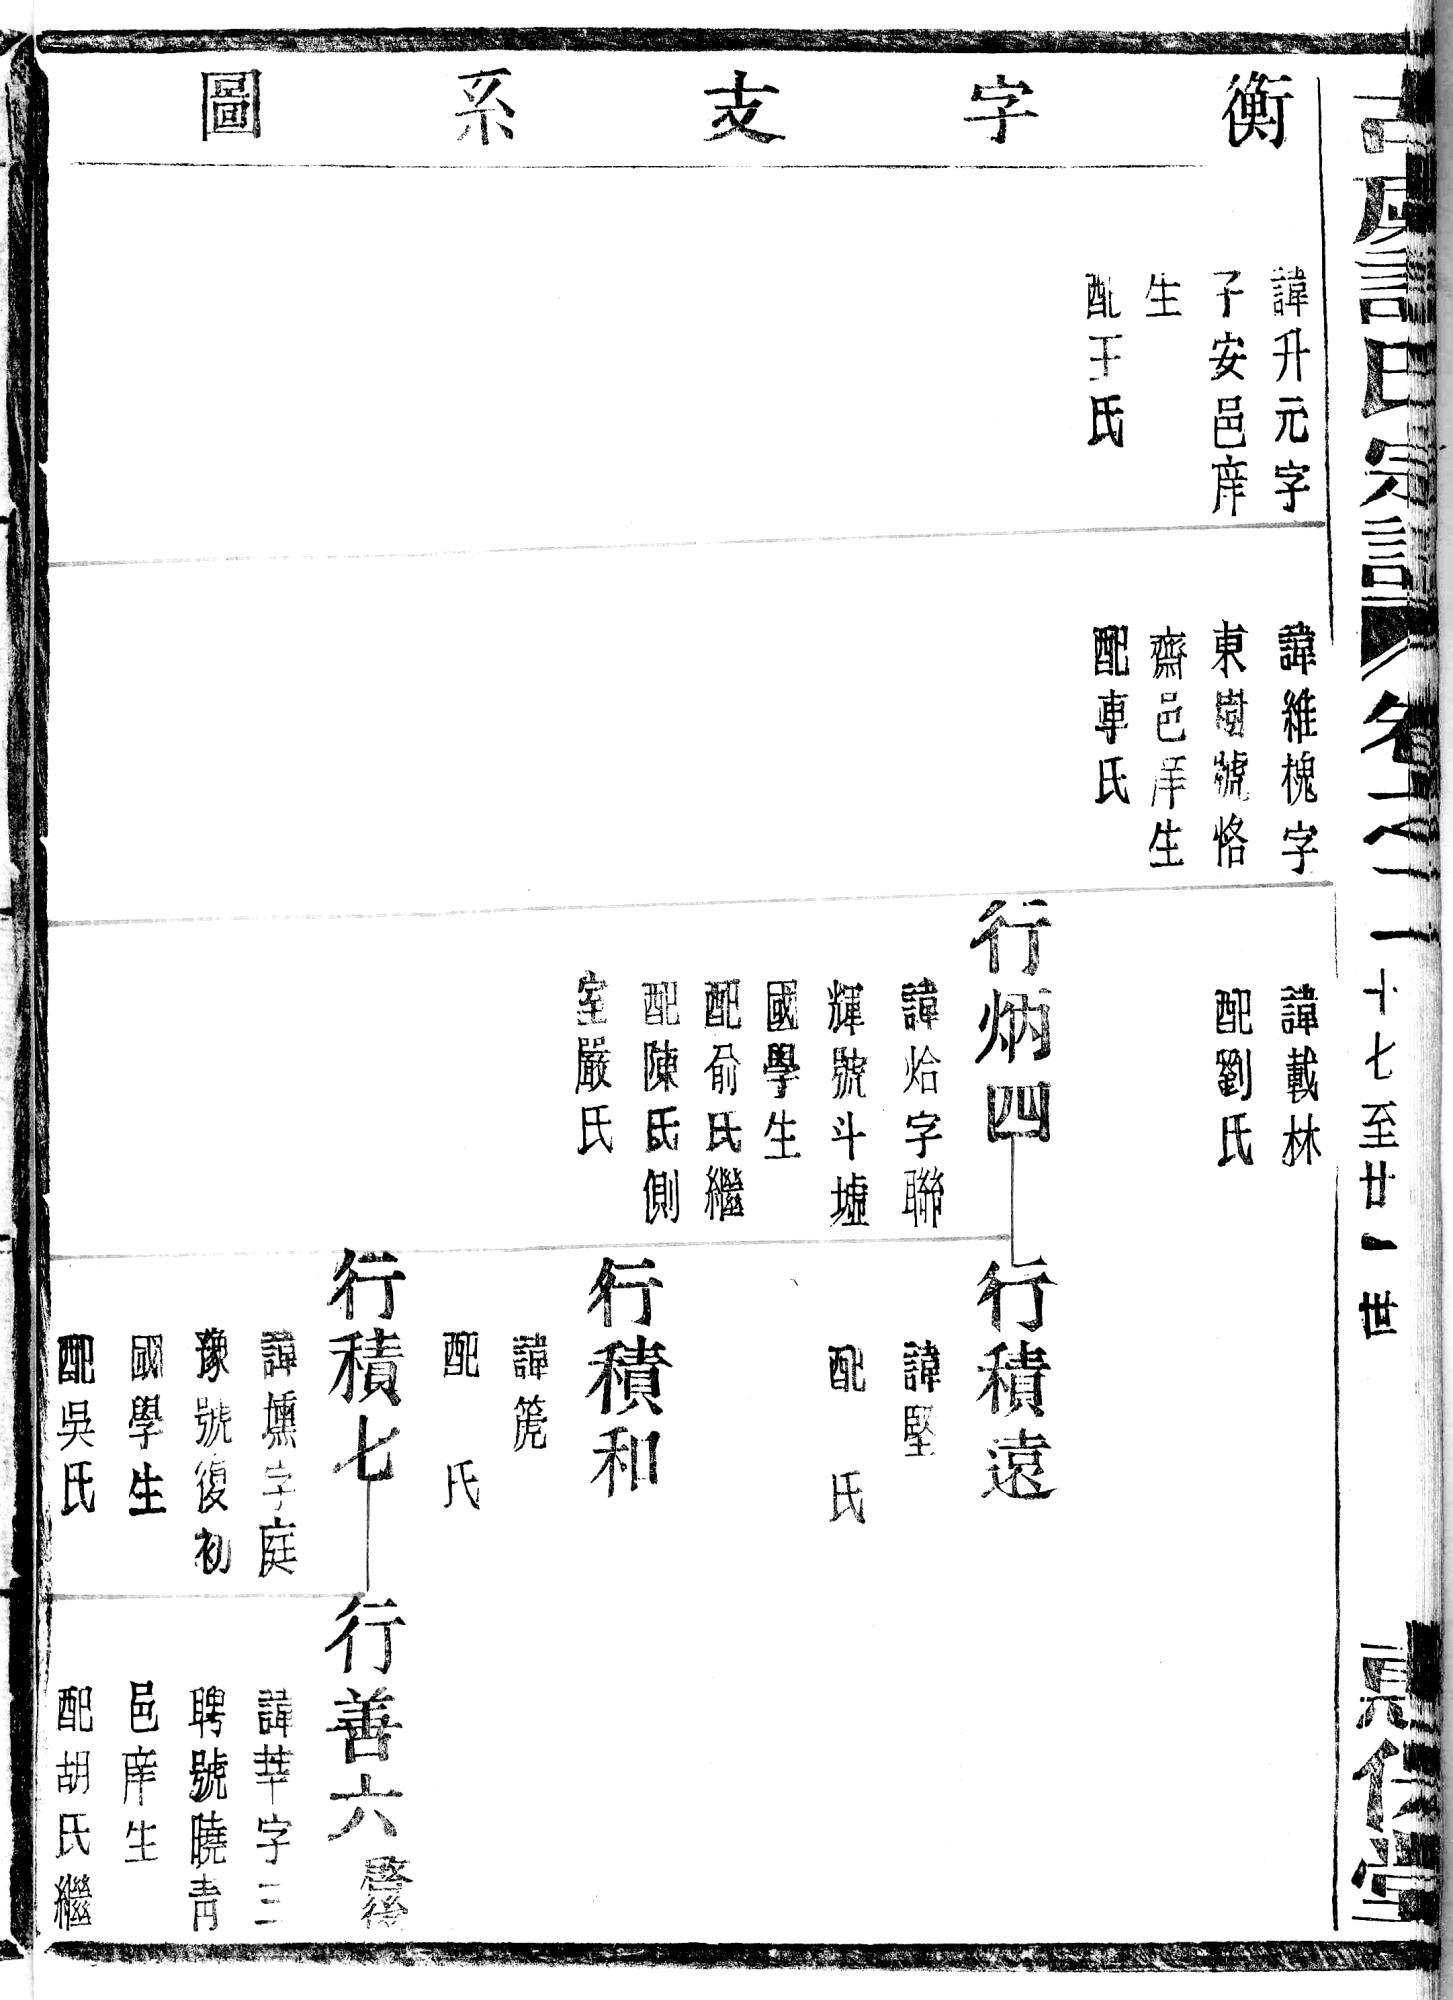 衡字支系圖
諱升元字
子安邑庠
生
配王氏
諱維槐字
東樹號恪
齋邑庠生
配專氏
諱載林
配劉氏
行炳四
諱烚字聯
輝號斗墟
國學生
配俞氏繼
配陳氏側
室嚴氏
行積遠
諱堅
配　氏
行積和
諱箎
配　氏
行積七
諱壎字庭
豫號復初
國學生
配吳氏
行善六
啓後
諱莘字三
聘號曉青
邑庠生
配胡氏繼
氏宗譜
卷之二
十七至廿一世
惠伦堂